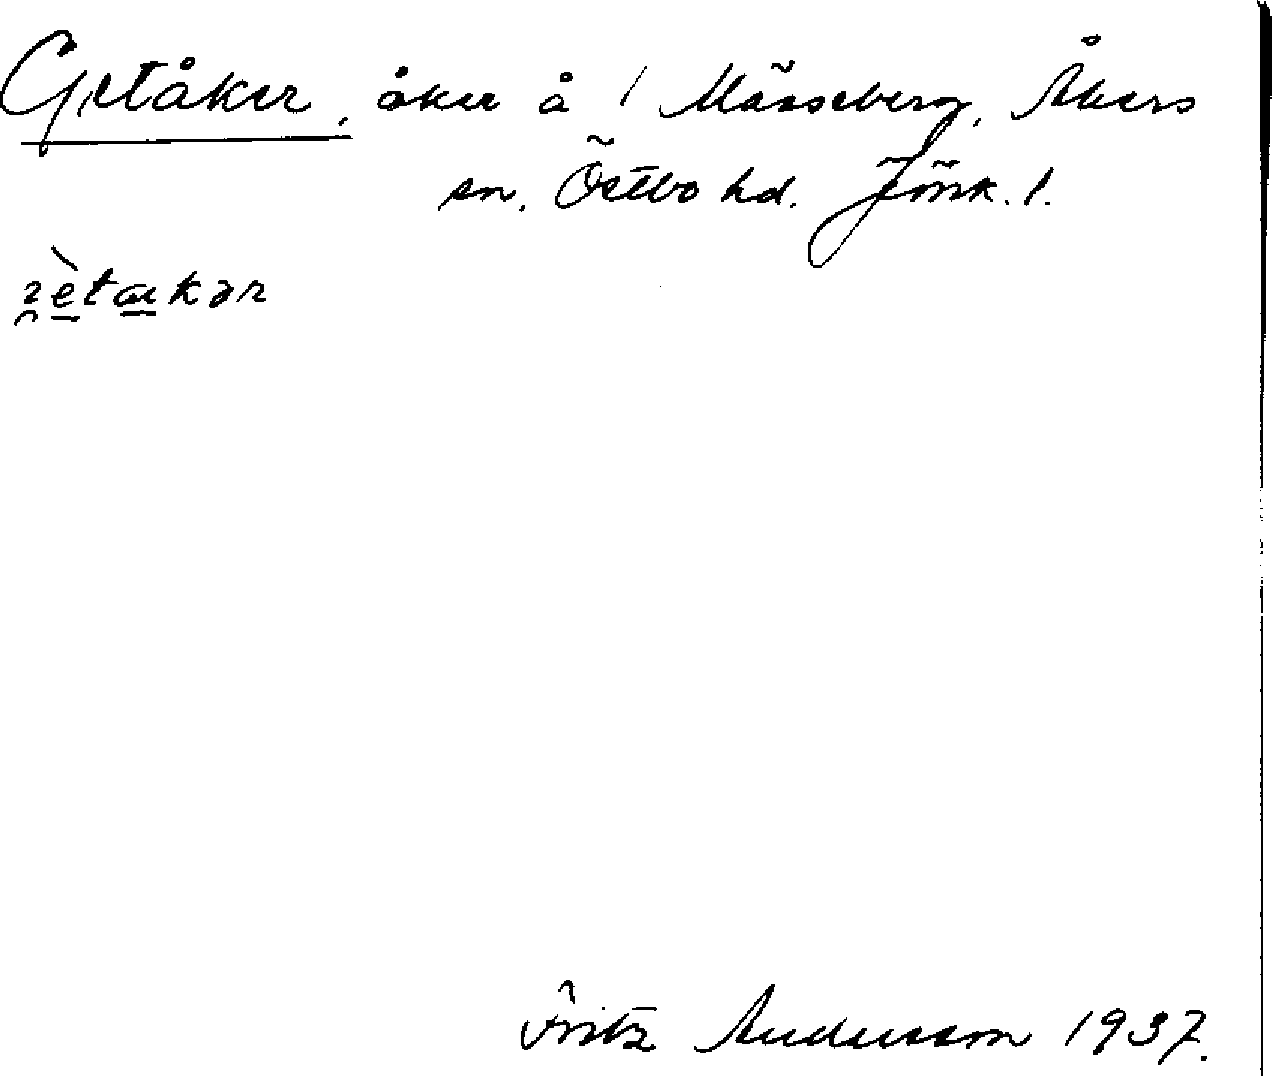 Getåker, åker å 1 Mässeberg, Åkers
sn. Östbo hd. Jönk. l.
Fritz Andersson 1937.